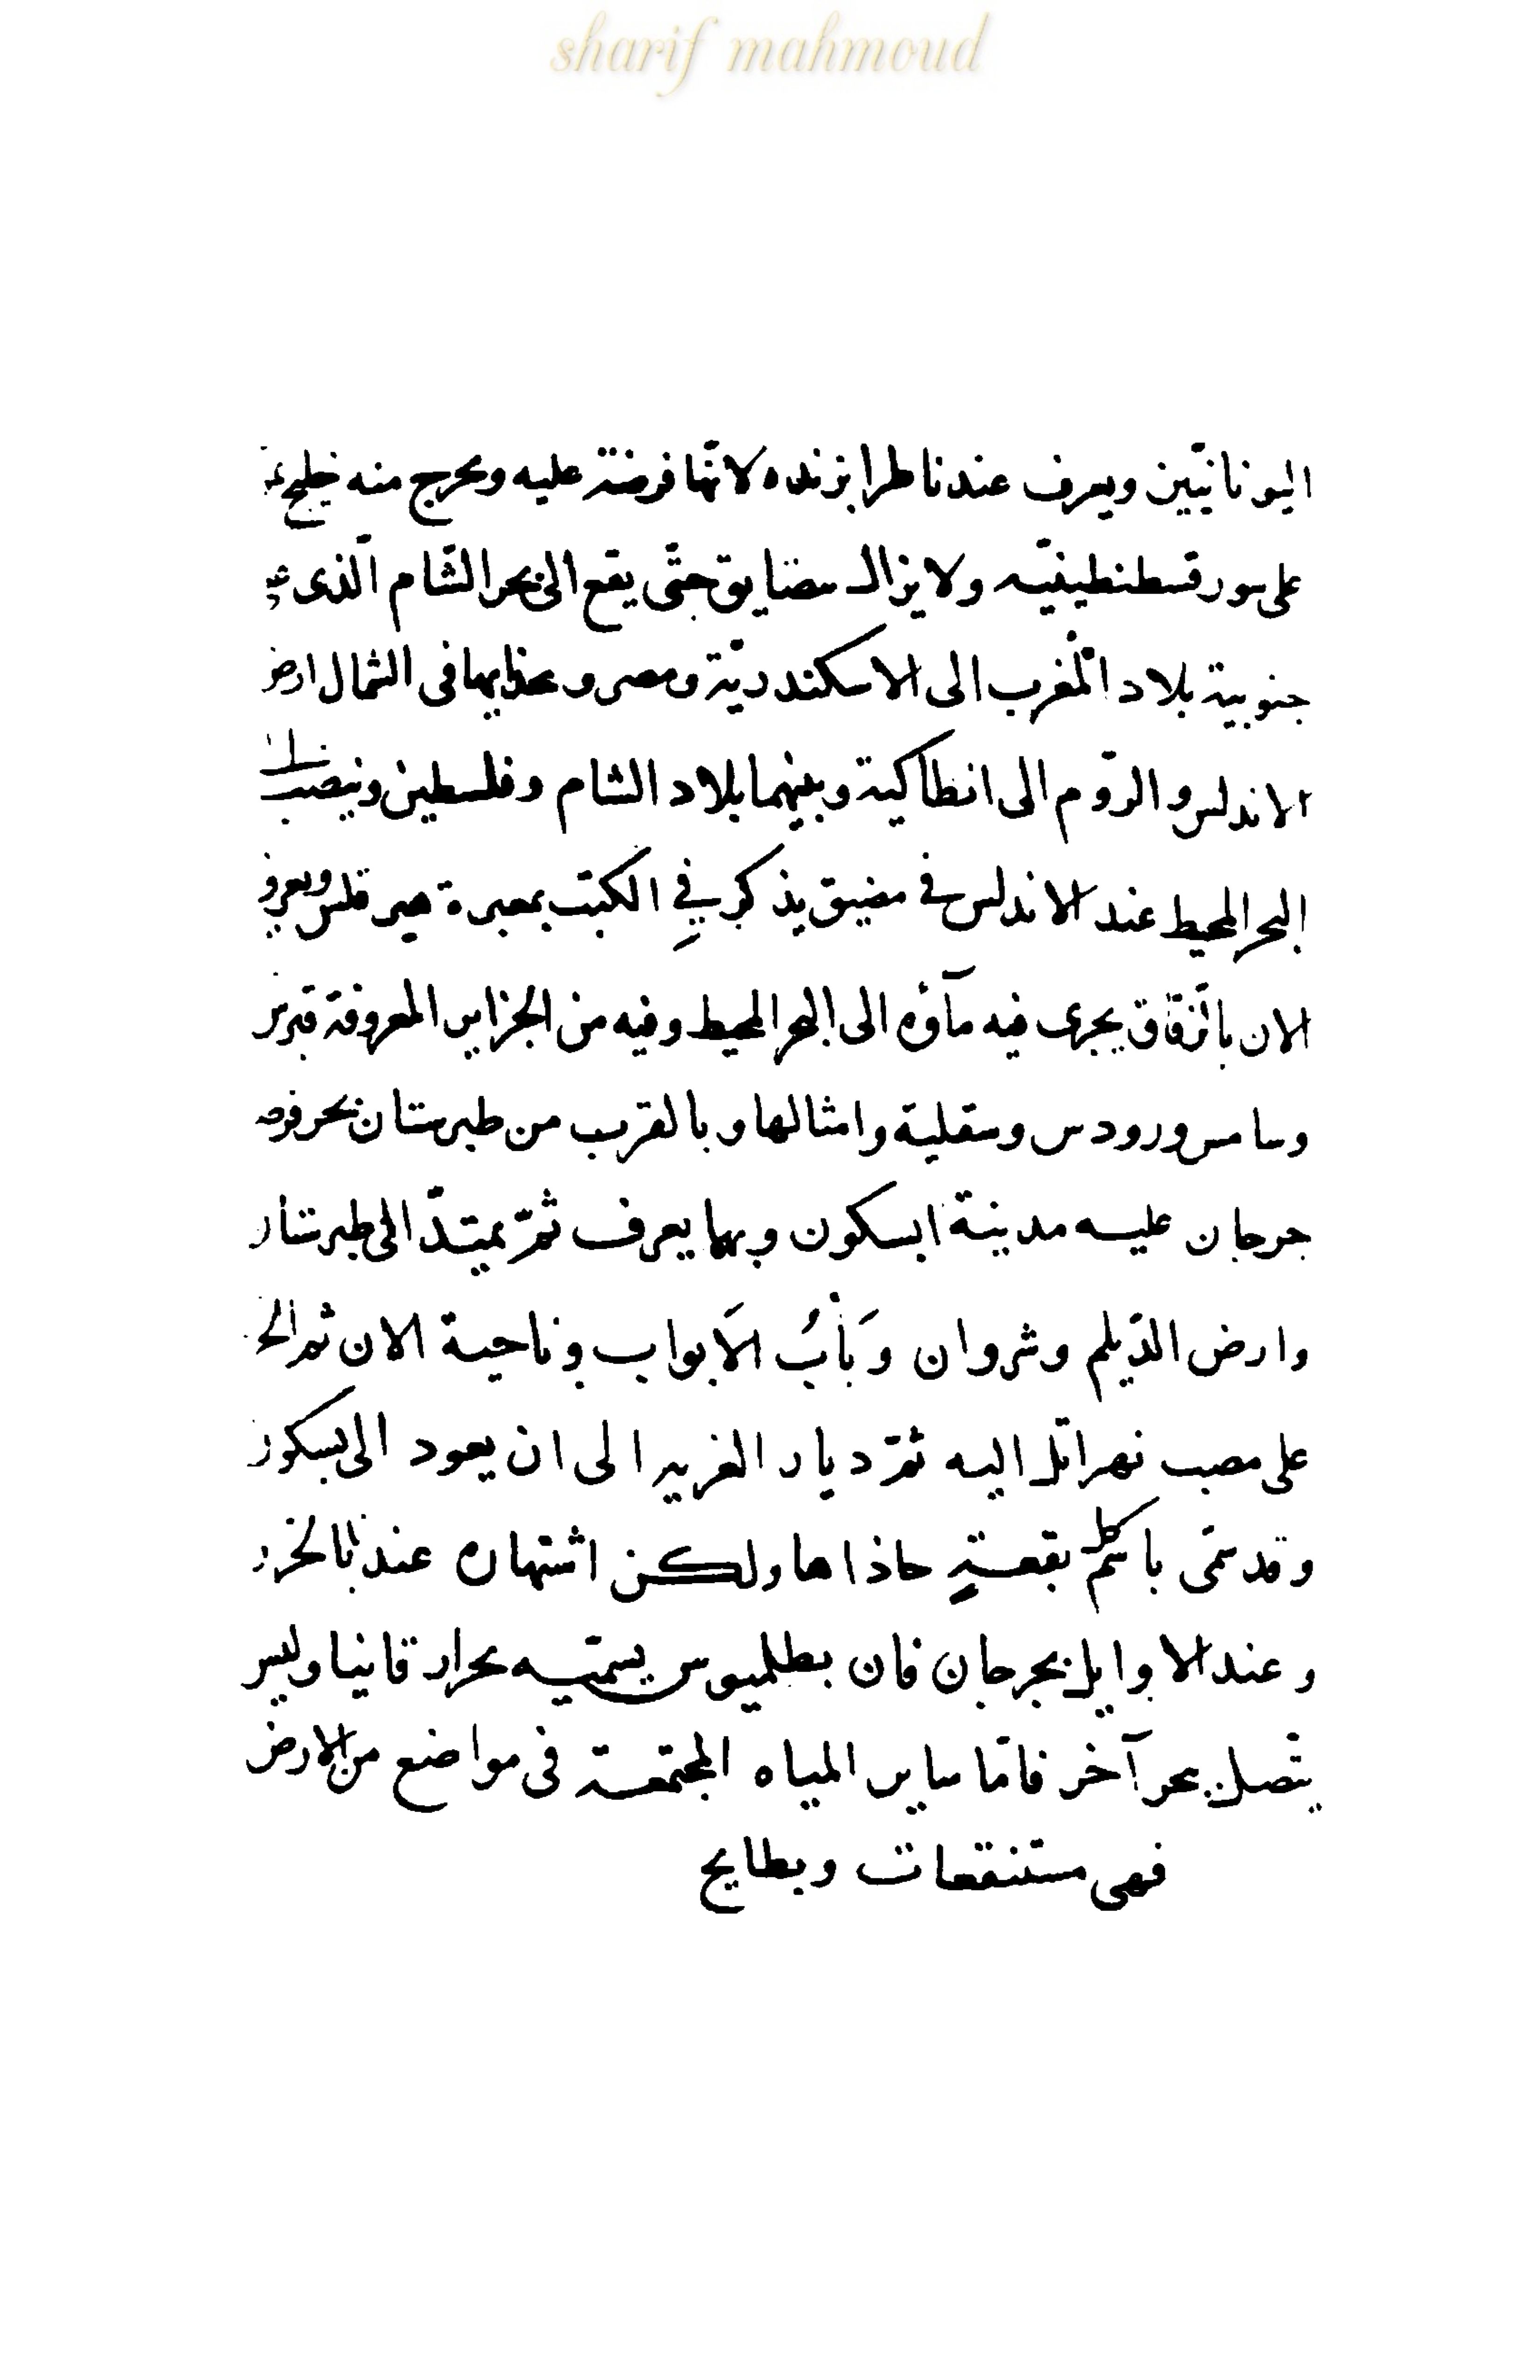 sharif mahmoud
اليونانيّين ويعرف عندنا طرابزنده لانّها فرضة عليه ويخرج منه خليج
على سور قسطنطينيّه ولا يزال يتضايق حتّى يقع الى بحر الشّام الّذى
جنوبية بلاد المغرب الى الاسكندريّة ومصر وبحذايهما فى الشمال ارض
الاندلس والرّوم الى انطاكية وبينهما بلاد الشام وفلسطين وينصب الى
البحر المحيط عند الاندلس فى مضيق يذكر فِي الكتب بمعبرة هيرقلس ويعرف
الان بالزّقاق يجرى فيه مآؤه الى البحر المحيط وفيه من الجزاير المعروفة قبرس
وسامس ورودس وسقلية وامثالها وبالقرب من طبرستان بحر فرضه
جرجان عليه مدينة ابسكون وبها يعرف ثمّ يمتدّ الى طبرستان
وارض الدّيلم وشروان وَبَابُ الاَبواب وناحية الان ثم الخزر
على مصب نهر اتل اليه ثمّ ديار الغزيه الى ان يعود الى ابسكون
وقد سمّى باسم كل بقعةٍ حاذاها ولكن اشتهاره عندنا بالخزر
وعند الاوايل بجرجان فان بطلميوس يسمّيه بحر ارقانيا وليس
يتّصل ببحر آخر فامّا ساير المياه المجتمعة فى مواضع من الارض
فهى مستنقعات وبطايح